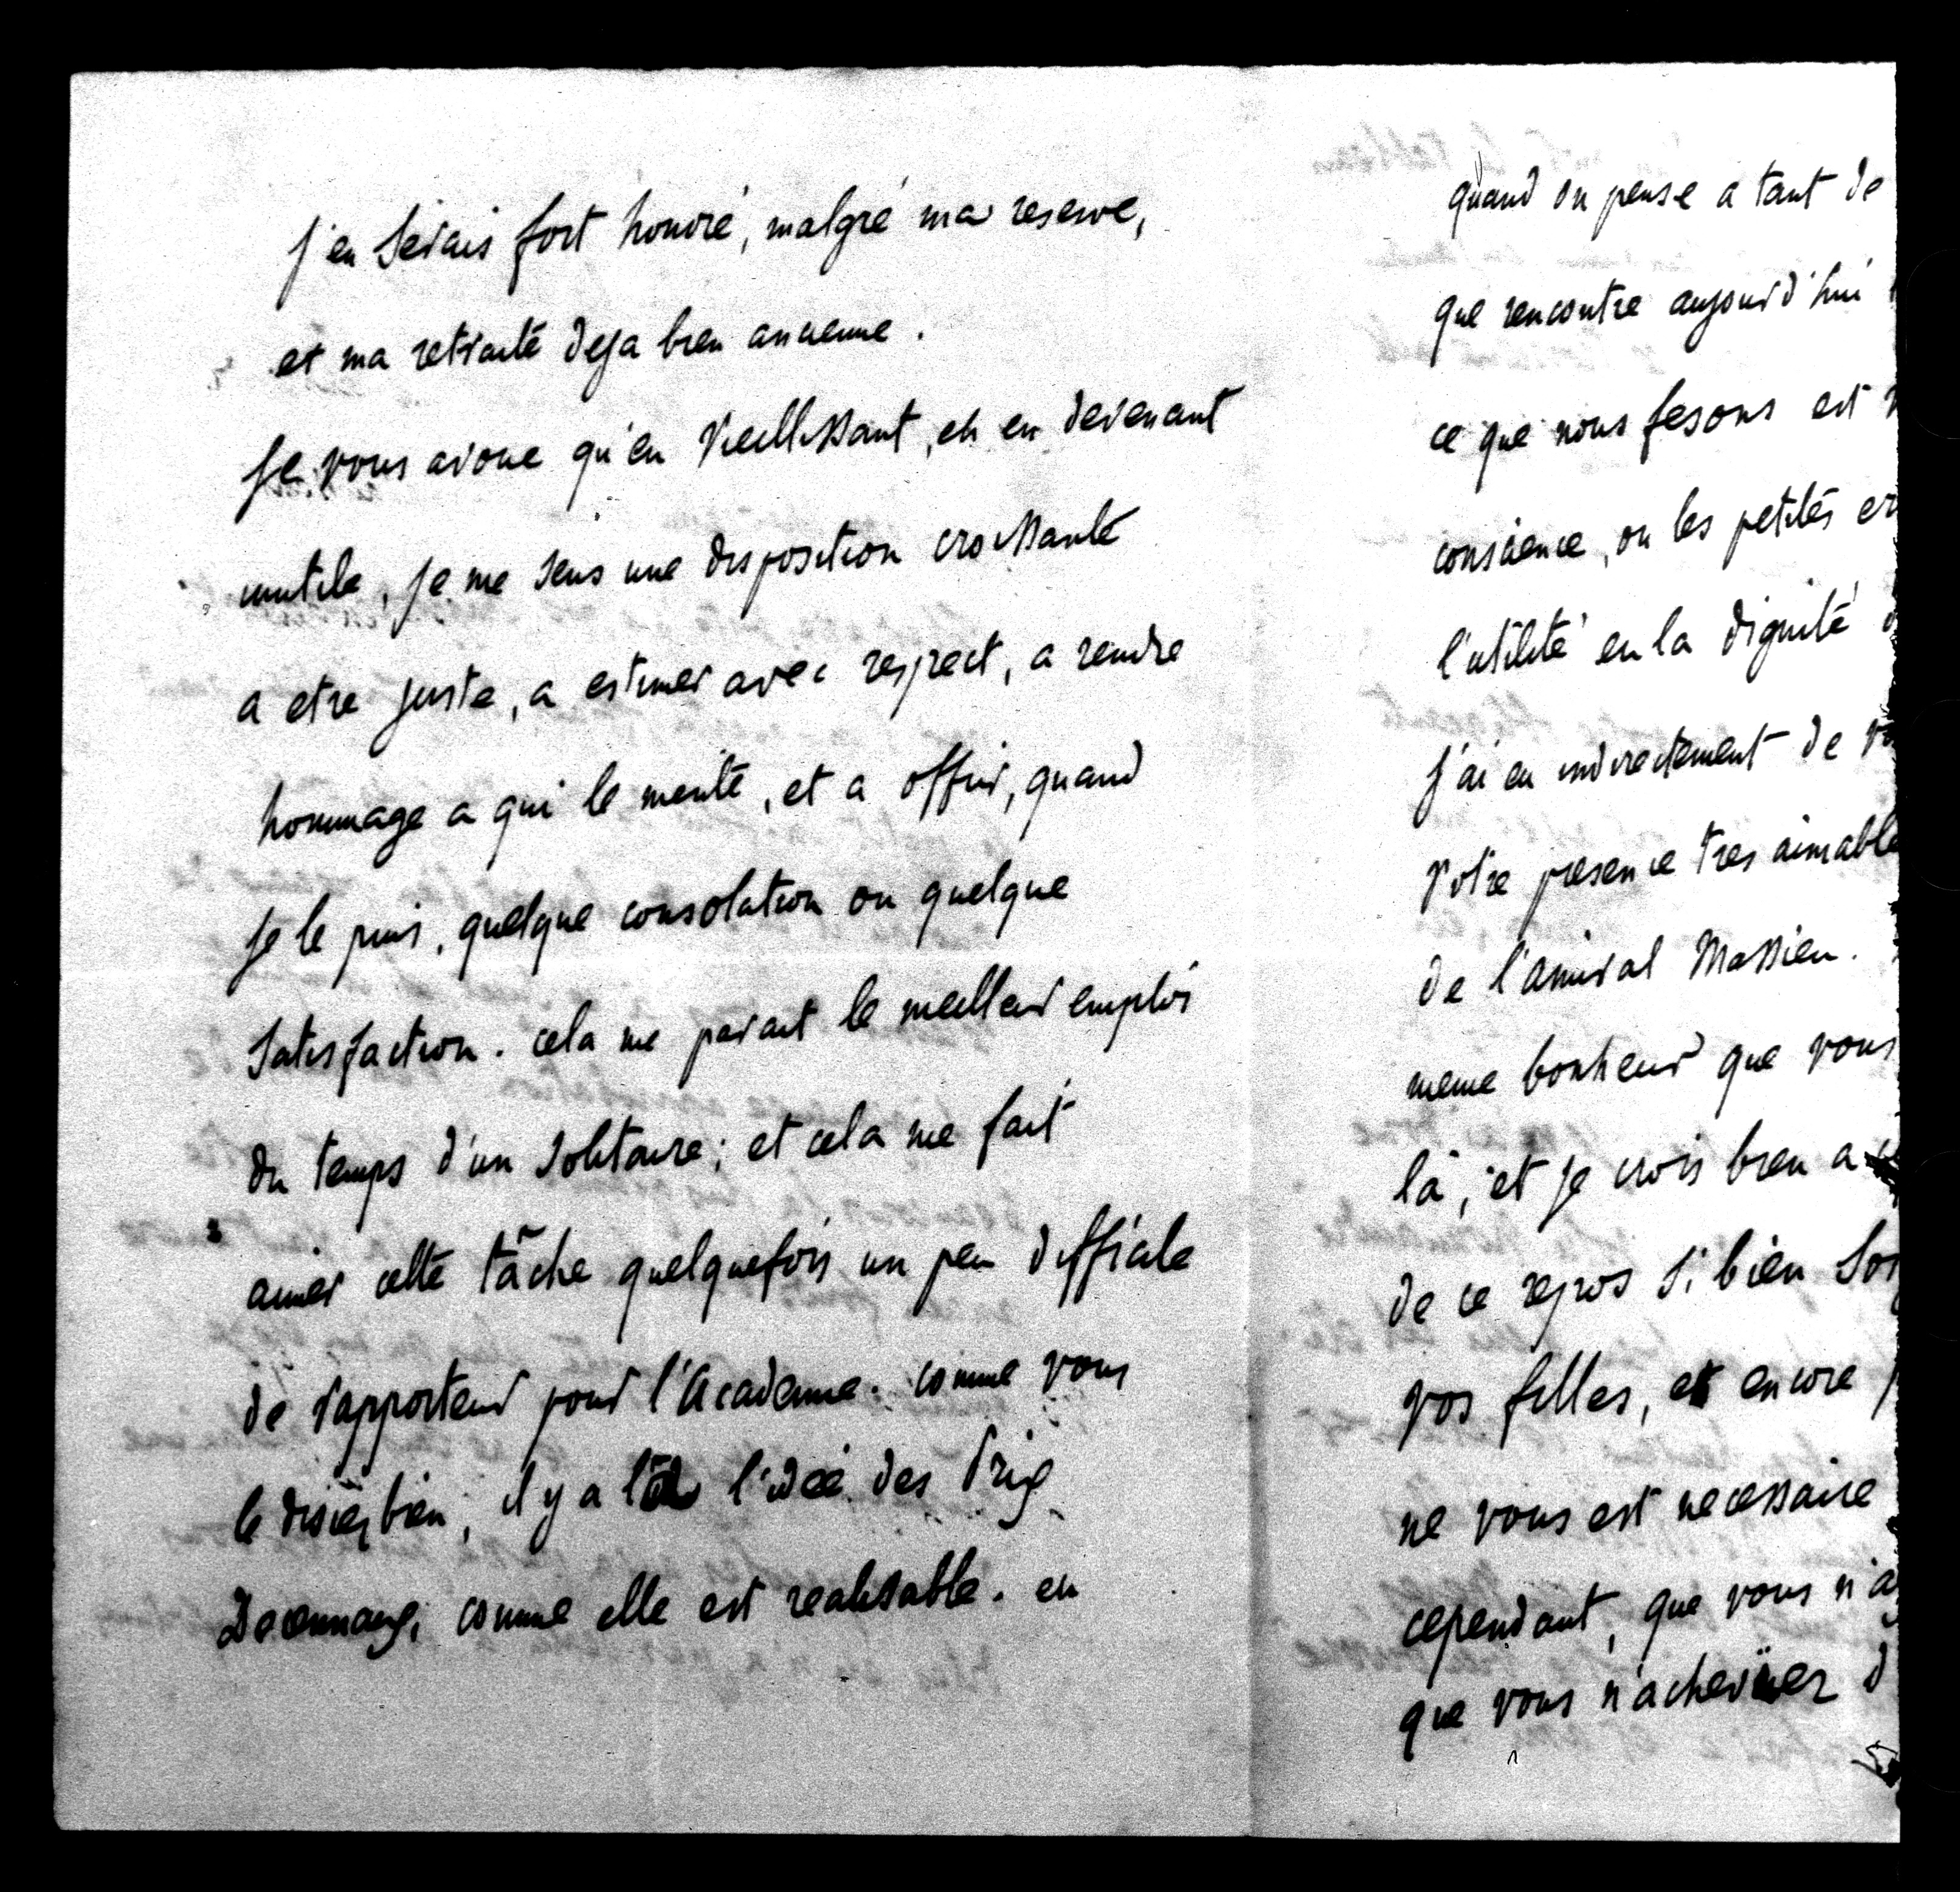 j'en serais fort honoré, malgré ma reserve,
et ma retraité deja bien ancienne.
Je vous avoue qu'en vieillissant, et en devenant
inutile, je me sens une disposition croissanté
a etre juste, a estimer avec respect, a rendre
hommage a qui le merité, et a offrir, quand
je le puis, quelque consolation ou quelque
satisfaction. cela me parait le meilleur emploi
du temps d'un solitaire; et cela me fait
aimer cette tâche quelquefois un peu difficile
de rapporteur pour l'Academie. comme vous
le disiez bien, il y a là l'ideé des Prix
Decennaux, comme elle est realisable. en
quand on pense a tant de
que rencontre aujourd'hui
ce que nous fesons est
conscience, ou les petités
l'utilité en la dignité
j'ai eu indirectement de
Votre presence tres aimable
de l'amiral Massieu.
meme bonheur que vous
là, et je crois bien a
de ce repos si bien
vos filles, et encore
ne vous est necessaire
cependant, que vous
que vous n'acheviez